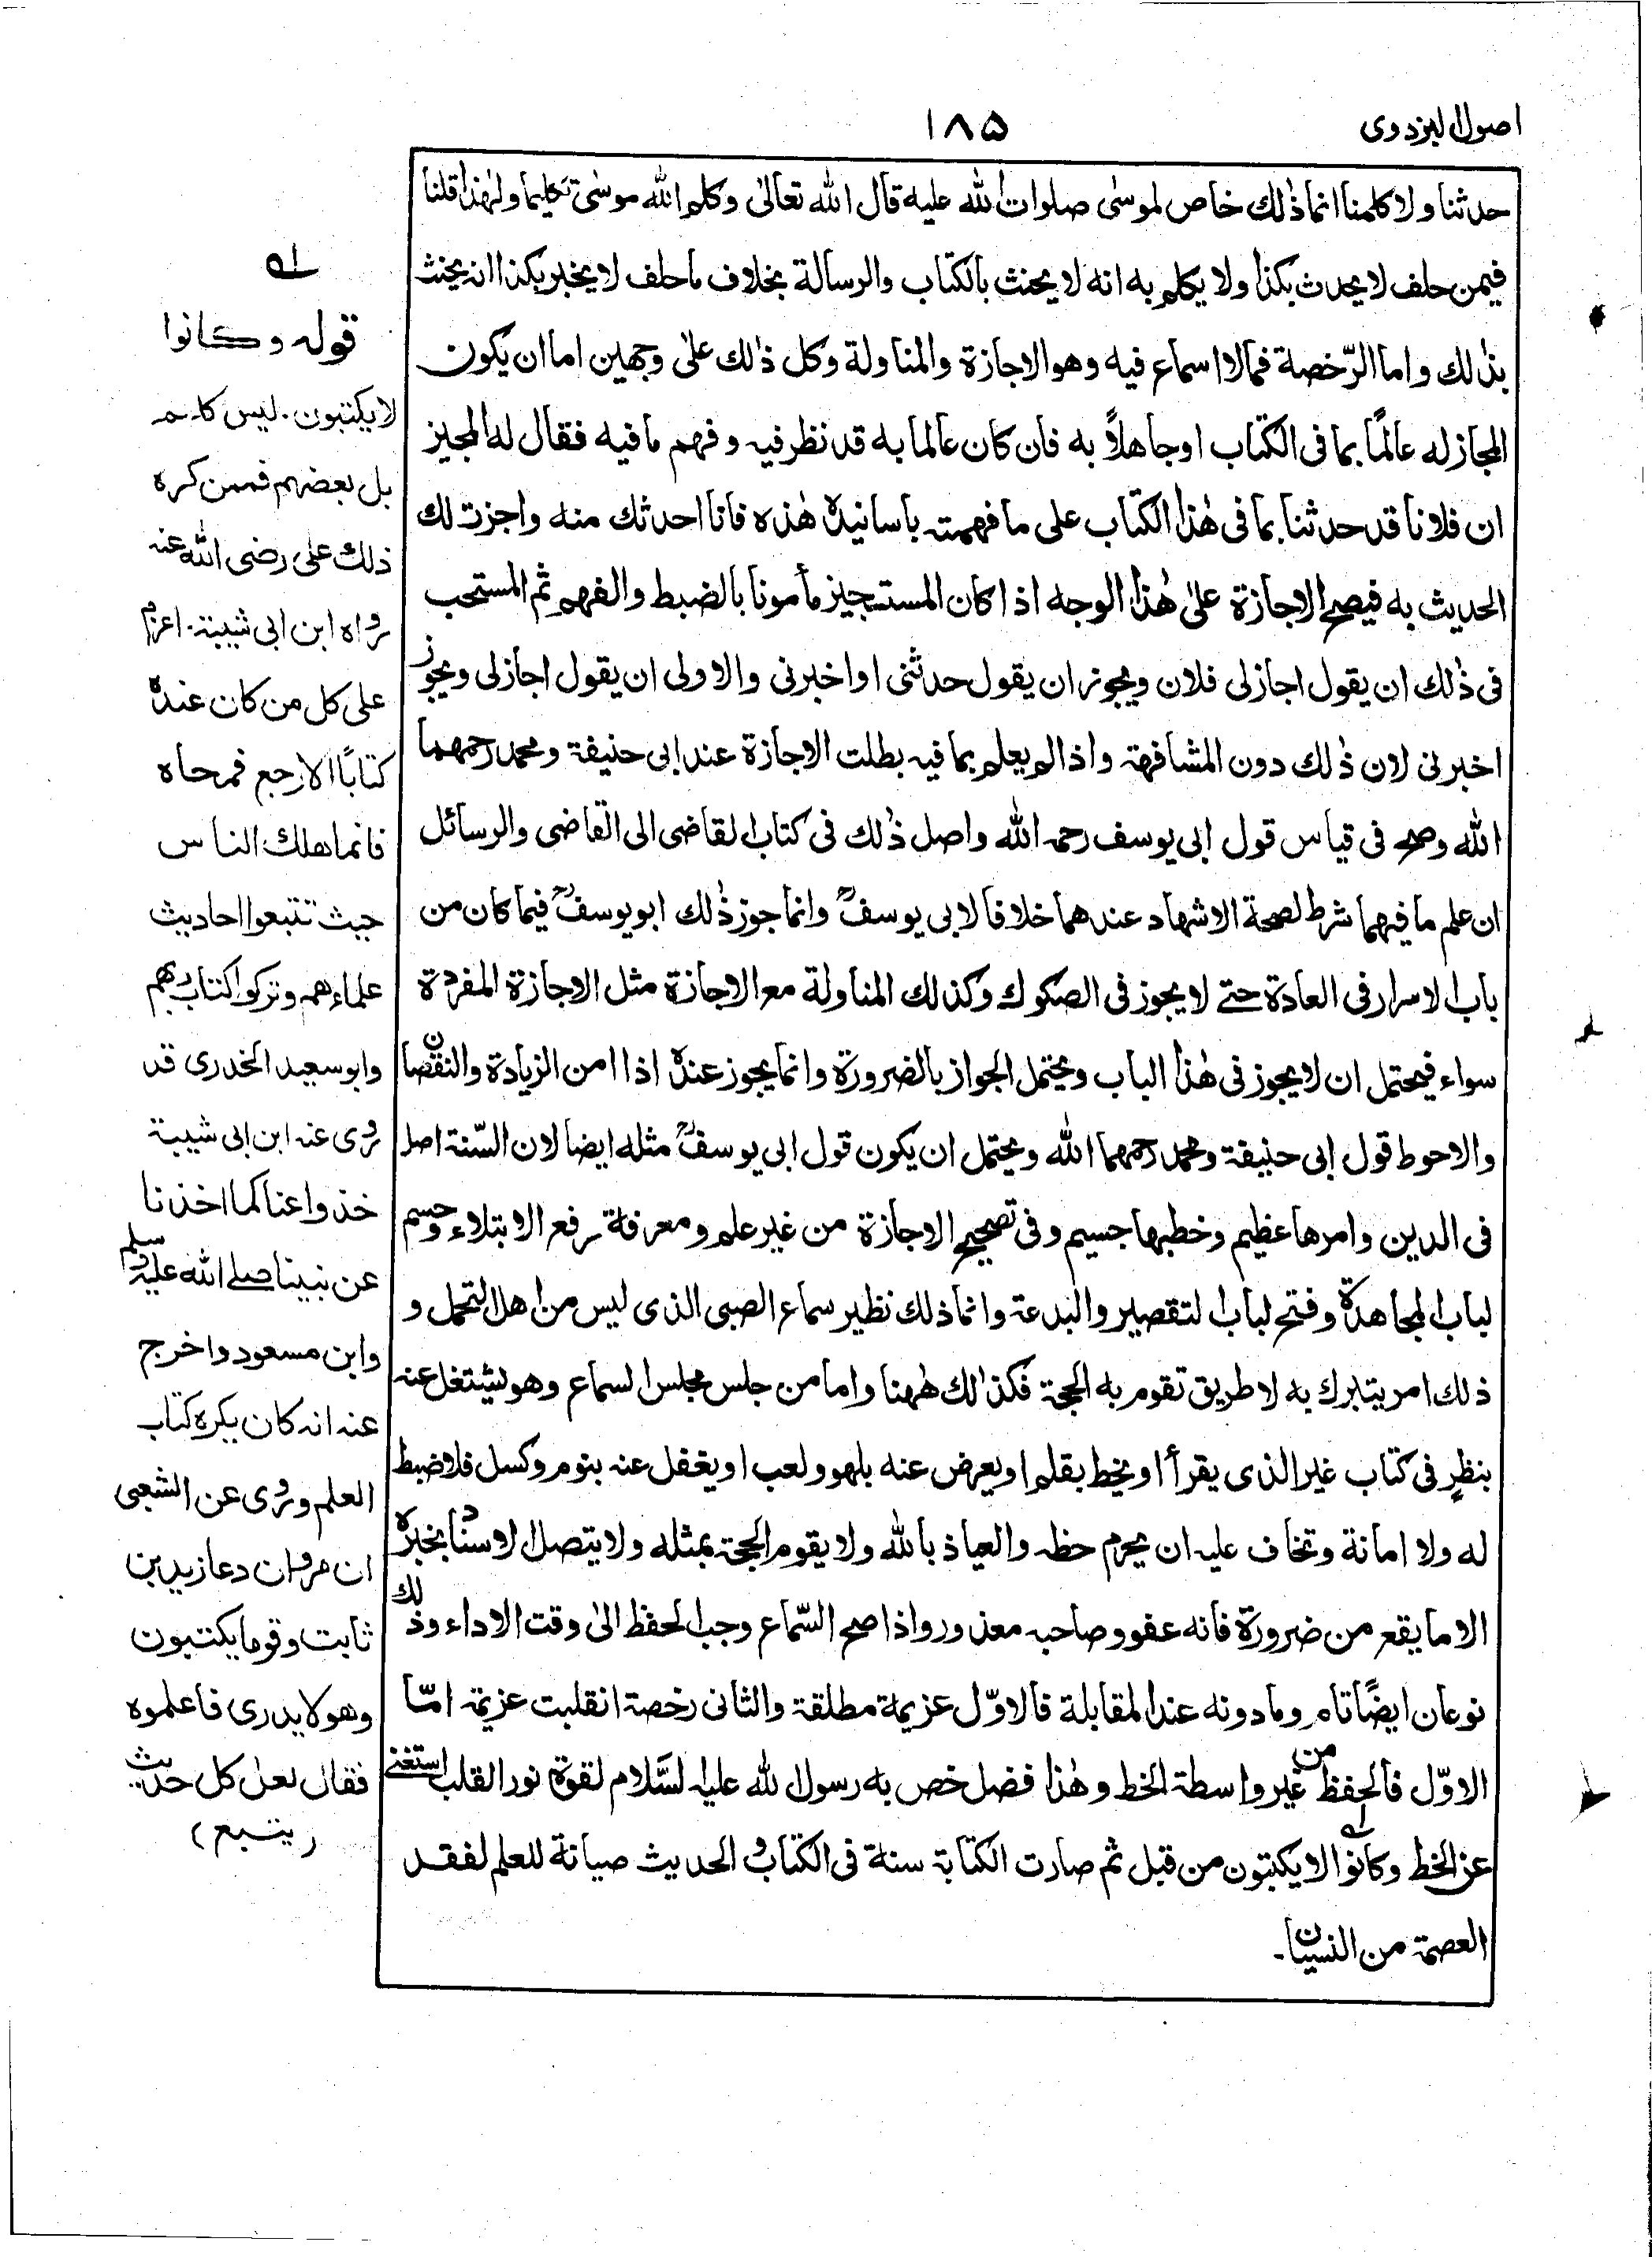 اصول البزدوي
۱۸۵
حدثنا ولا كلمنا انما ذٰلك خاص لموسٰى صلوات الله عليه قال الله تعالىٰ وكلم الله موسٰى تكليما ولهٰذا قلنا
فيمن حلف لا يحدث بكذا ولا يكلم به انه لا يحنث بالكتاب والرسالة بخلاف ما حلف لا يخبر بكذا انه يحنث
بذٰلك واما الرّخصة فما لا اسماع فيه وهو الاجازة والمناولة وكل ذٰلك علىٰ وجهين اما ان يكون
المجاز له عالمًا بما فى الكتاب اوجاهلاً به فان كان عالما به قد نظر فيه وفهم ما فيه فقال له المجيز
ان فلانا قد حدثنا بما فى هٰذا الكتاب على ما فهمته باسانيده هٰذه فانا احدثك منه واجزت لك
الحديث به فيصح الاجازة علىٰ هٰذا الوجه اذا كان المستجيز مأمونا بالضبط والفهم ثم المستحب
فى ذٰلك ان يقول اجازلى فلان ويجوز ان يقول حدثنى او اخبرنى والاولى ان يقول اجازلى ويجوز
اخبرنى لان ذٰلك دون المشافهة واذا لم يعلم بما فيه بطلت الاجازة عند ابى حنيفة ومحمد رحمهما
الله وصح فى قياس قول ابى يوسف رحمه الله واصل ذٰلك فى كتاب القاضى الى القاضى والرسائل
ان علم ما فيهما شرط لصحة الاشهاد عندهما خلافا لابى يوسفؒ وانما جوز ذٰلك ابويوسفؒ فيما كان من
باب الاسرار فى العادة حتے لا يجوز فى الصكوك وكذلك المناولة مع الاجازة مثل الاجازة المفردة
سواء فيحتمل ان لا يجوز فى هٰذا الباب ويحتمل الجواز بالضرورة وانما يجوز عنده اذا امن الزيادة والنقصان
والاحوط قول ابى حنيفة ومحمد رحمهما الله ويحتمل ان يكون قول ابى يوسفؒ مثله ايضا لان السّنة اصل
فى الدين وامرها عظيم وخطبها جسيم وفى تصحيح الاجازة من غير علم ومعرفة رفع الابتلاء وحسم
لباب المجاهدة وفتح لباب التقصير والبدعة وانما ذلك نظير سماع الصبى الذى ليس من اهل التحمل و
ذلك امر يتبرك به لا طريق تقوم به الحجة فكذٰلك هٰهنا واما من جلس مجلس السماع وهو يشتغل عنه
بنظرٍ فى كتاب غير الذى يقرأ او يخط بقلم او يعرض عنه بلهو ولعب او يغفل عنه بنوم وكسل فلا ضبط
له ولا امانة وتخاف عليه ان يحرم حظه والعياذ بالله ولا يقوم الحجة بمثله ولا يتصل الاسناد بخبره
الا ما يقع من ضرورة فانه عفو وصاحبه معذور واذا صح السّماع وجب الحفظ الىٰ وقت الاداء وذٰلك
نوعان ايضًا تام وما دونه عند المقابلة فالاوّل عزيمة مطلقة والثانى رخصة انقلبت عزيمة امّا
الاوّل فالحفظ من غير واسطة الخط وهٰذا فضل خص به رسول الله عليه السَّلام لقوة نور القلب استغنے
عن الخط وكانوا لا يكتبون من قبل ثم صارت الكتابة سنة فى الكتاب والحديث صيانة للعلم لفقد
العصمة من النسيان۔
قوله وكانوا
لا يكتبون. ليس كلهم
بل بعضهم فممن كره
ذلك على رضى الله عنه
رواه ابن ابى شيبة. اعزم
على كل من كان عنده
كتابًا الا رجع فمحاه
فانما هلك الناس
حيث تتبعوا احاديث
علماءهم وتركوا كتاب ربهم
وابوسعيد الخدرى قد
روى عنه ابن ابى شيبة
خذوا عنا كما اخذنا
عن نبينا صلے الله عليه وسلم
وابن مسعود واخرج
عنه انه كان يكره كتاب
العلم وروى عن الشعبى
ان مروان دعا زيد بن
ثابت وقوما يكتبون
وهو لا يدرى فاعلموه
فقال لعل كل حديث
(يتبع)